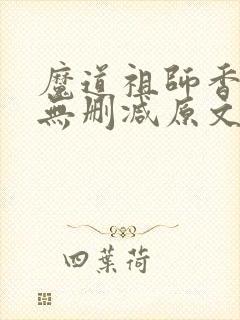 魔道祖師香
無刪減原文
四葉荷